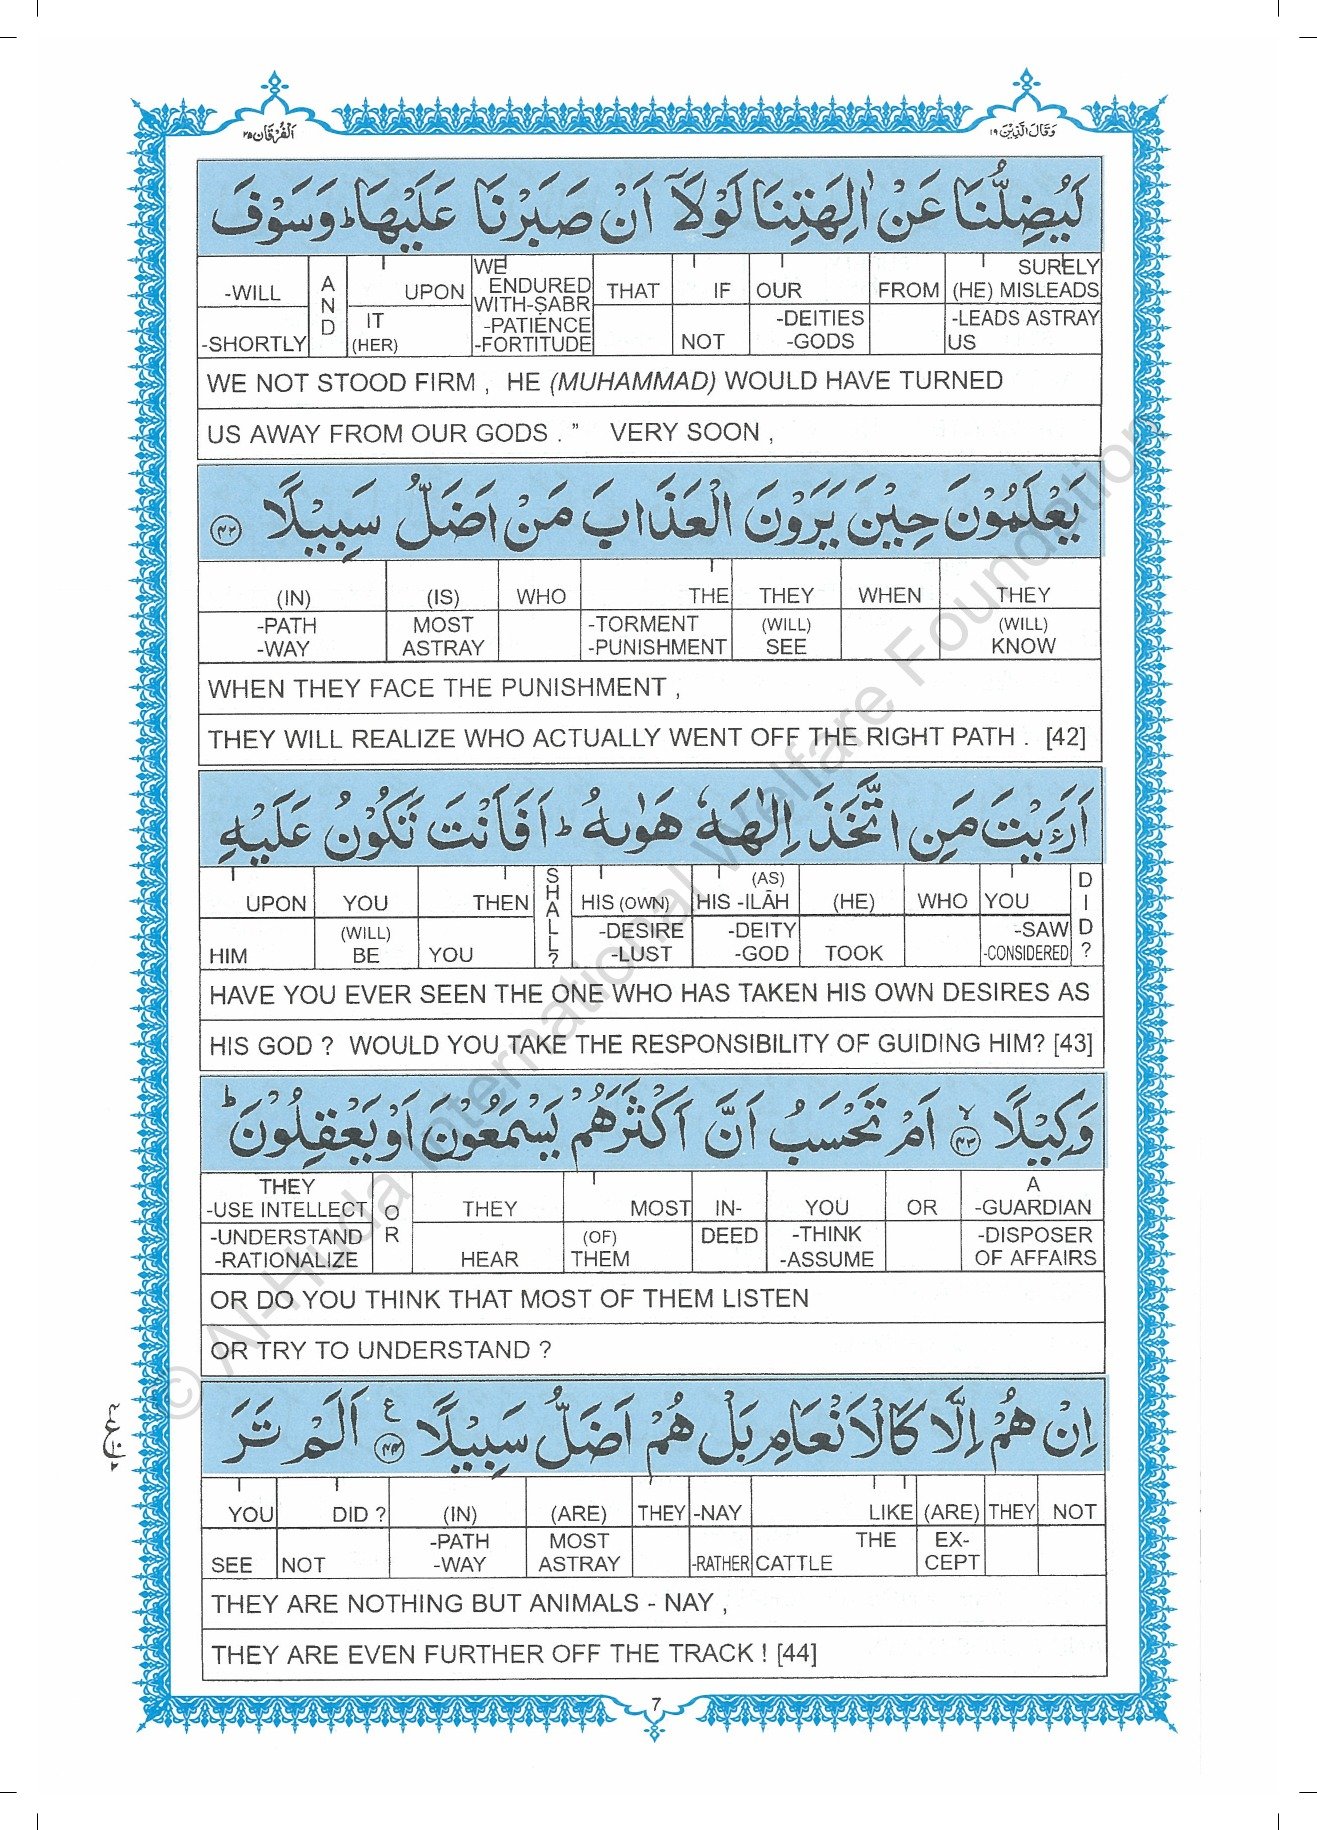 وَقَالَ الَّذِیْنَ ۱۹
اَلْفُرْقَان ۲۵
لَيُضِلُّنَا عَنْ اٰلِهَتِنَا لَوْلَاۤ اَنْ صَبَرْنَا عَلَيْهَا ؕ وَسَوْفَ
-WILL AND UPON WE ENDURED THAT IF OUR FROM SURELY (HE) MISLEADS
-SHORTLY IT (HER) WITH-ṢABR -PATIENCE -FORTITUDE NOT -DEITIES -GODS -LEADS ASTRAY US
WE NOT STOOD FIRM , HE (MUHAMMAD) WOULD HAVE TURNED
US AWAY FROM OUR GODS . ” VERY SOON ,
يَعْلَمُوْنَ حِيْنَ يَرَوْنَ الْعَذَابَ مَنْ اَضَلُّ سَبِيْلًا ۴۲
(IN) (IS) WHO THE THEY WHEN THEY
-PATH -WAY MOST ASTRAY -TORMENT -PUNISHMENT (WILL) SEE (WILL) KNOW
WHEN THEY FACE THE PUNISHMENT ,
THEY WILL REALIZE WHO ACTUALLY WENT OFF THE RIGHT PATH . [42]
اَرَءَيْتَ مَنِ اتَّخَذَ اِلٰهَهٗ هَوٰىهُ ؕ اَفَاَنْتَ تَكُوْنُ عَلَيْهِ
UPON YOU THEN SHALL? HIS (OWN) HIS (AS) -ILĀH (HE) WHO YOU DID?
HIM (WILL) BE YOU -DESIRE -LUST -DEITY -GOD TOOK -SAW -CONSIDERED
HAVE YOU EVER SEEN THE ONE WHO HAS TAKEN HIS OWN DESIRES AS
HIS GOD ? WOULD YOU TAKE THE RESPONSIBILITY OF GUIDING HIM? [43]
وَكِيْلًا ۴۳ۙ اَمْ تَحْسَبُ اَنَّ اَكْثَرَهُمْ يَسْمَعُوْنَ اَوْ يَعْقِلُوْنَ ؕ
THEY -USE INTELLECT OR THEY MOST IN- YOU OR A -GUARDIAN
-UNDERSTAND -RATIONALIZE HEAR (OF) THEM DEED -THINK -ASSUME -DISPOSER OF AFFAIRS
OR DO YOU THINK THAT MOST OF THEM LISTEN
OR TRY TO UNDERSTAND ?
اِنْ هُمْ اِلَّا كَالْاَنْعَامِ بَلْ هُمْ اَضَلُّ سَبِيْلًا ۴۴ ع اَلَمْ تَرَ
YOU DID ? (IN) (ARE) THEY -NAY LIKE (ARE) THEY NOT
SEE NOT -PATH -WAY MOST ASTRAY -RATHER THE CATTLE EX- CEPT
THEY ARE NOTHING BUT ANIMALS - NAY ,
THEY ARE EVEN FURTHER OFF THE TRACK ! [44]
7
© Al-Huda International Welfare Foundation